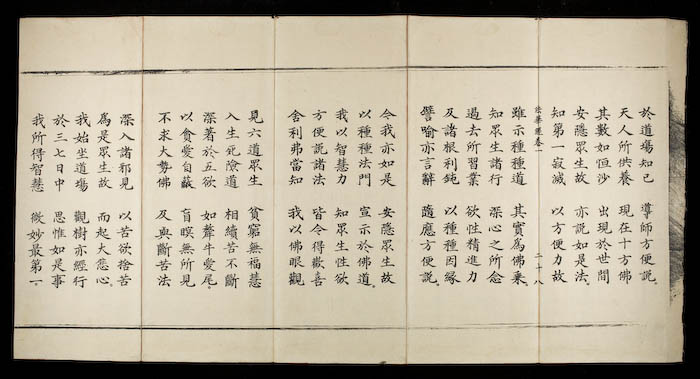 於道場知已 導師方便說。
天人所供養 現在十方佛
其數如恒沙 出現於世間
安隱衆生故 亦說如是法。
知第一寂滅 以方便力故
法華經卷一 二十八
雖示種種道 其實為佛乘。
知衆生諸行 深心之所念
過去所習業 欲性精進力
及諸根利鈍 以種種因緣
譬喻亦言辭 隨應方便說。
今我亦如是 安隱衆生故
以種種法門 宣示於佛道。
我以智慧力 知衆生性欲
方便說諸法 皆令得歡喜
舍利弗當知 我以佛眼觀
見六道衆生 貧窮無福慧
入生死險道 相續苦不斷
深著於五欲 如犛牛愛尾。
以貪愛自蔽 盲瞑無所見
不求大勢佛 及與斷苦法
深入諸邪見 以苦欲捨苦
為是衆生故 而起大悲心。
我始坐道場 觀樹亦經行
於三七日中 思惟如是事
我所得智慧 微妙最第一